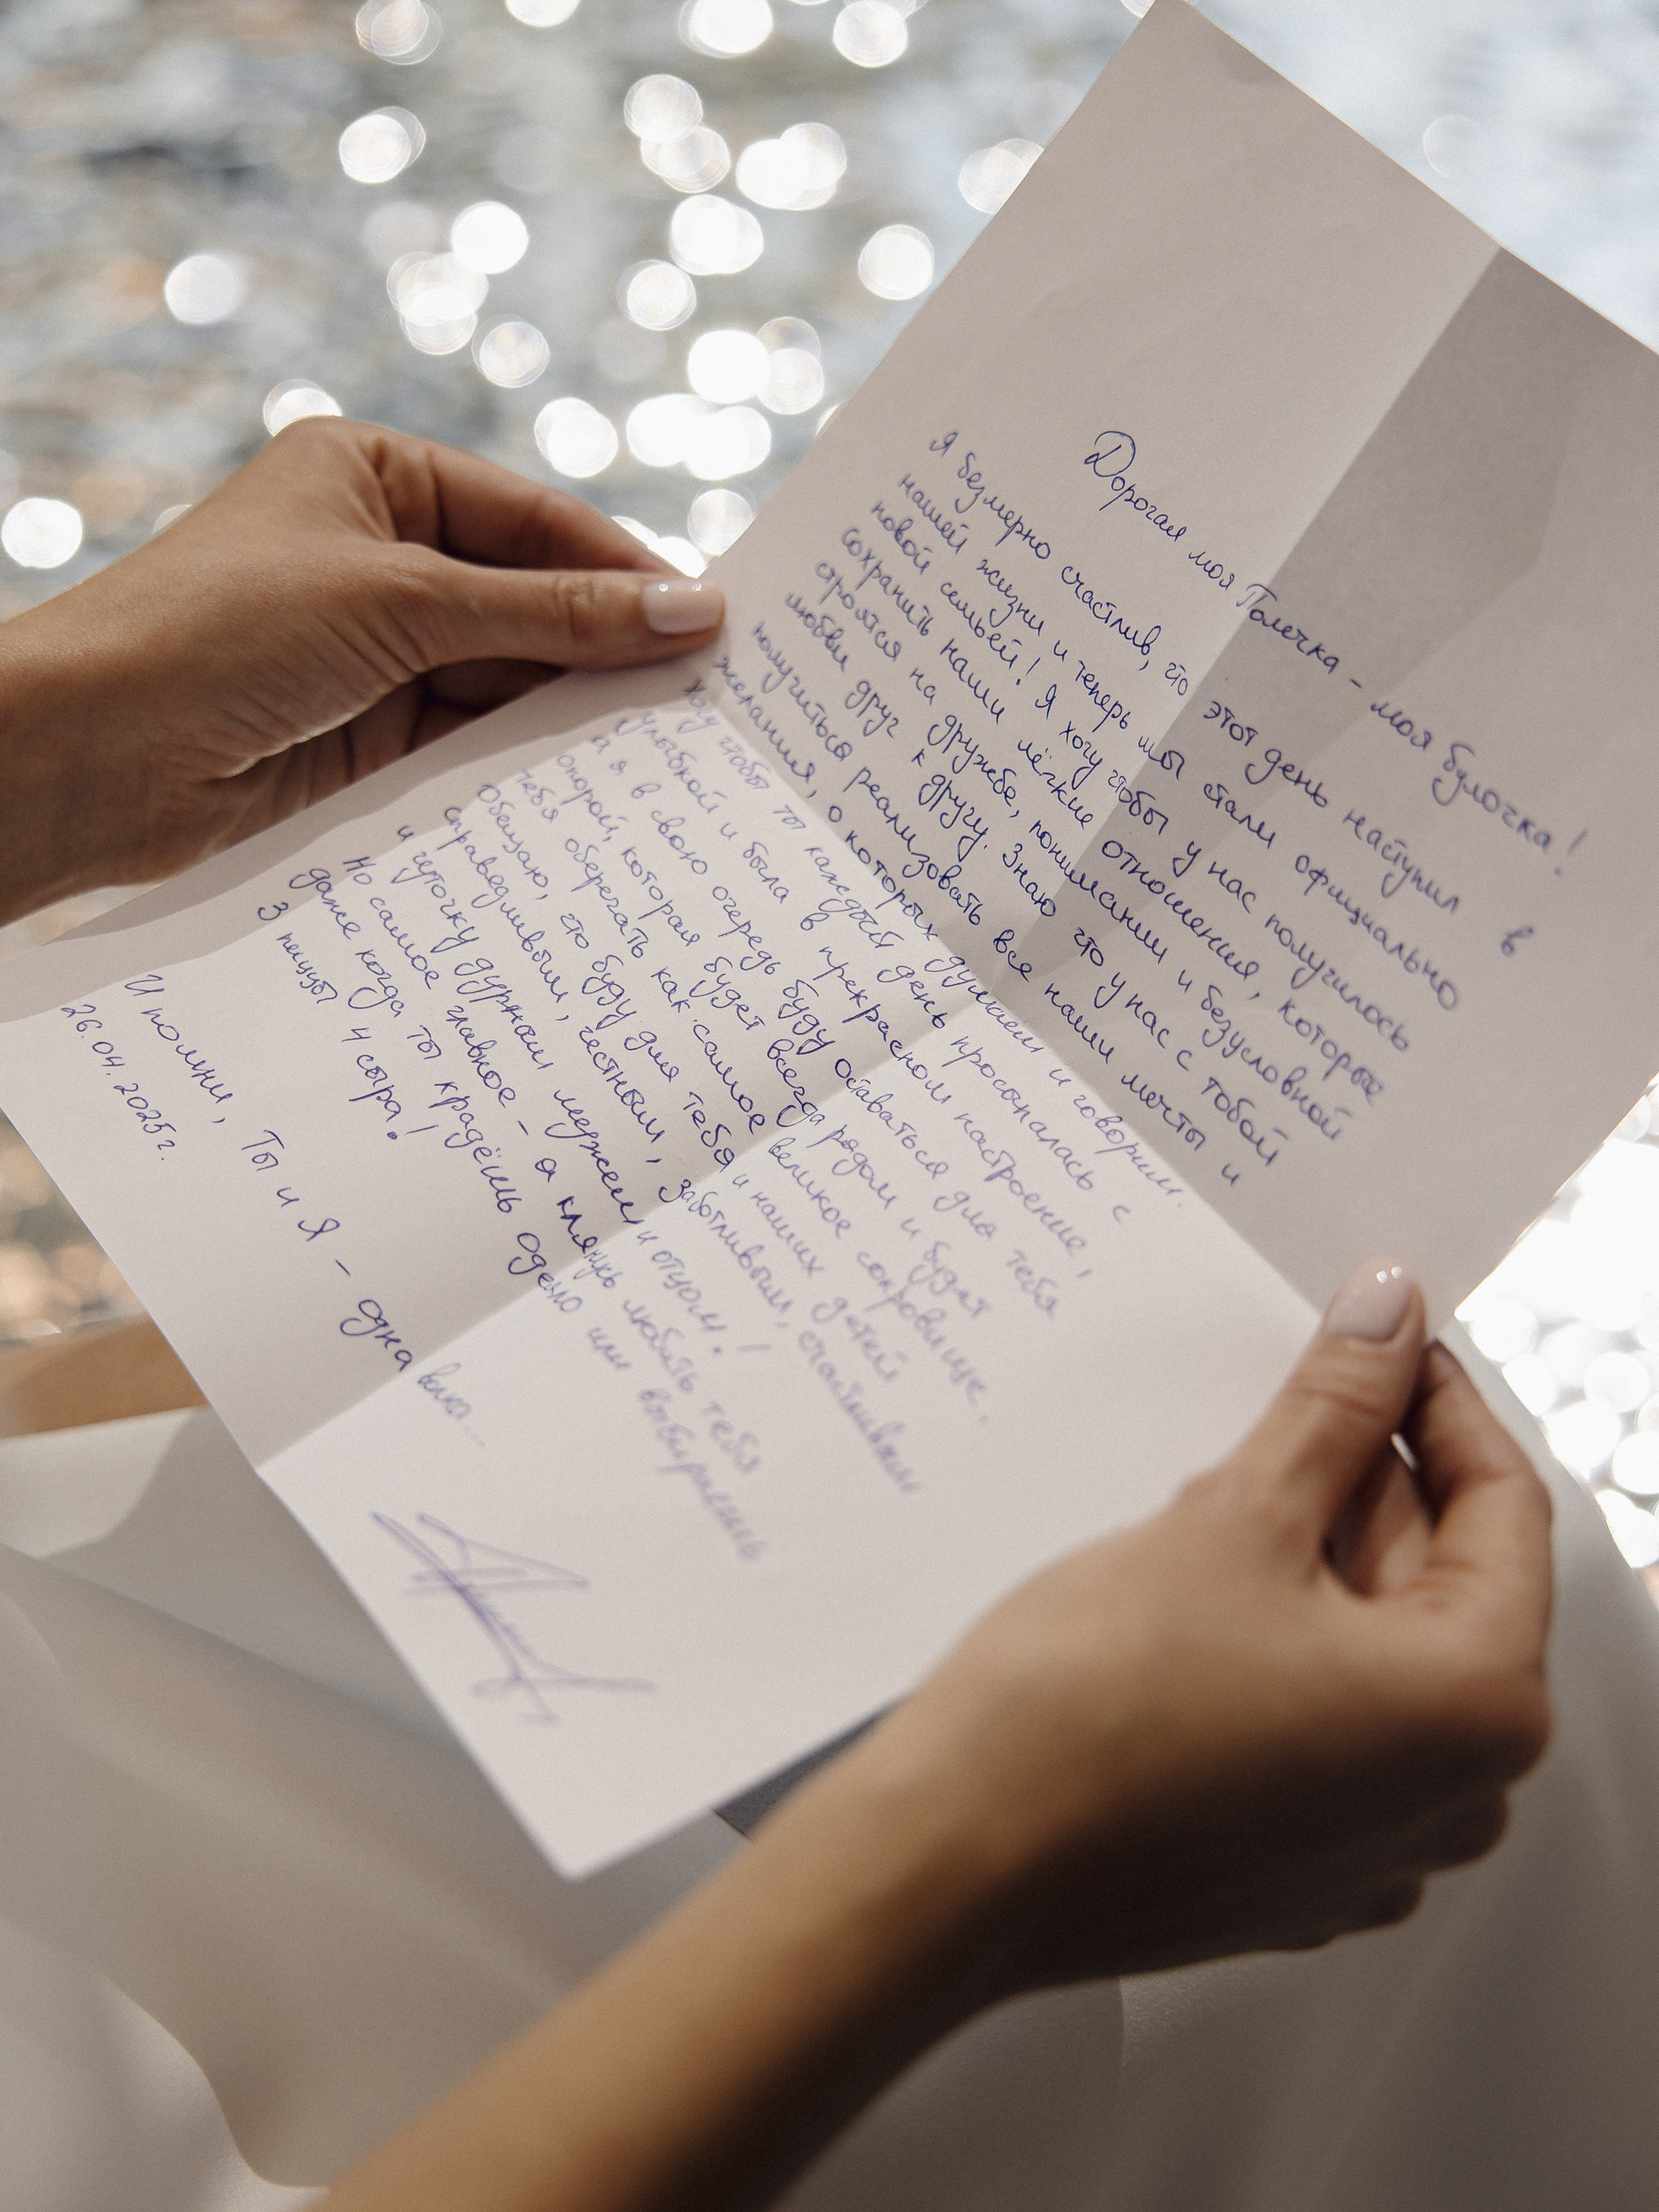 Дорогая моя Полечка - моя булочка!
Я безмерно счастлив, что этот день наступил в
нашей жизни и теперь мы стали официально
новой семьёй! Я хочу чтобы у нас получилось
сохранить наши лёгкие отношения, которые
строятся на дружбе, понимании и безусловной
любви друг к другу. Знаю что у нас с тобой
получиться реализовать все наши мечты и
желания, о которых думаем и говорим.
Хочу чтобы ты каждый день просыпалась с
улыбкой и была в прекрасном настроение,
а я в свою очередь буду оставаться для тебя
опорой, которая будет всегда рядом и будет
тебя оберегать как самое великое сокровище.
Обещаю, что буду для тебя и наших детей
справедливым, честным, заботливым, счастливым
и чуточку дурным мужем и отцом!
Но самое главное - я клянусь любить тебя
даже когда ты крадёшь одеяло или выбираешь
3 пиццы 4 сыра!
И помни, Ты и Я - одна
26.04.2025г.